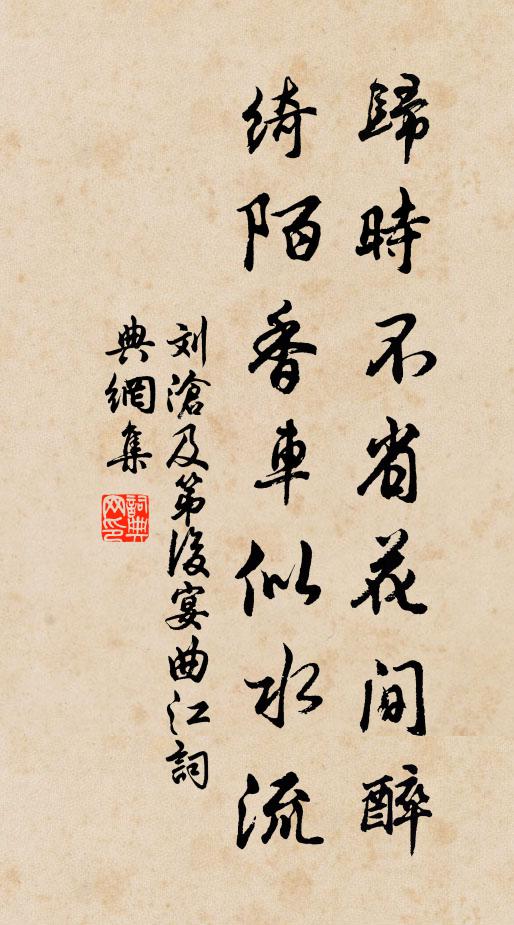 歸時不省花間醉
綺陌香車似水流
刘滄及第後宴曲江詞
典網集
詞典網印